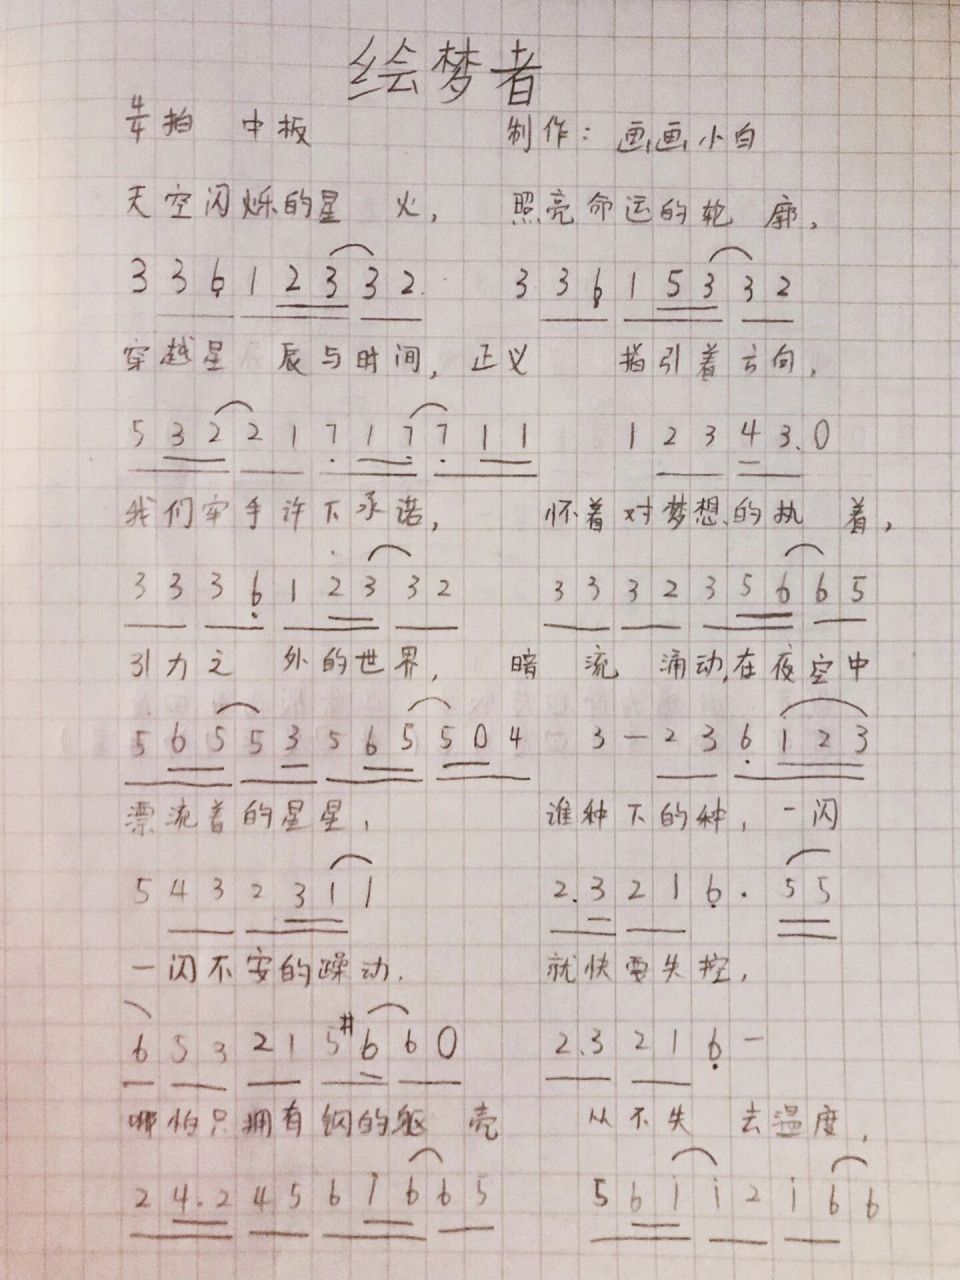 绘梦者
4/4拍 中板 制作：画画小白
天空闪烁的星 火， 照亮命运的轮 廓，
3 3 6 1 2 3 3 2. 3 3 6 1 5 3 3 2
穿越星 辰与时间，正义 指引着方向，
5 3 2 2 1 7 1 7 7 1 1 1 2 3 4 3. 0
我们牵手许下承诺， 怀着对梦想的执 着，
3 3 3 6 1 2 3 3 2 3 3 3 2 3 5 6 6 5
引力之 外的世界， 暗 流 涌动，在夜空中
5 6 5 5 3 5 6 5 5 0 4 3 — 2 3 6 1 2 3
漂流着的星星， 谁种下的种，一闪
5 4 3 2 3 1 1 2. 3 2 1 6 · 5 5
一闪不安的躁动. 就快要失控，
6 5 3 2 1 5 #6 6 0 2. 3 2 1 6 —
哪怕只拥有钢的躯 壳 从不失 去温度，
2 4. 2 4 5 6 1 6 6 5 5 6 i i 2 i 6 6